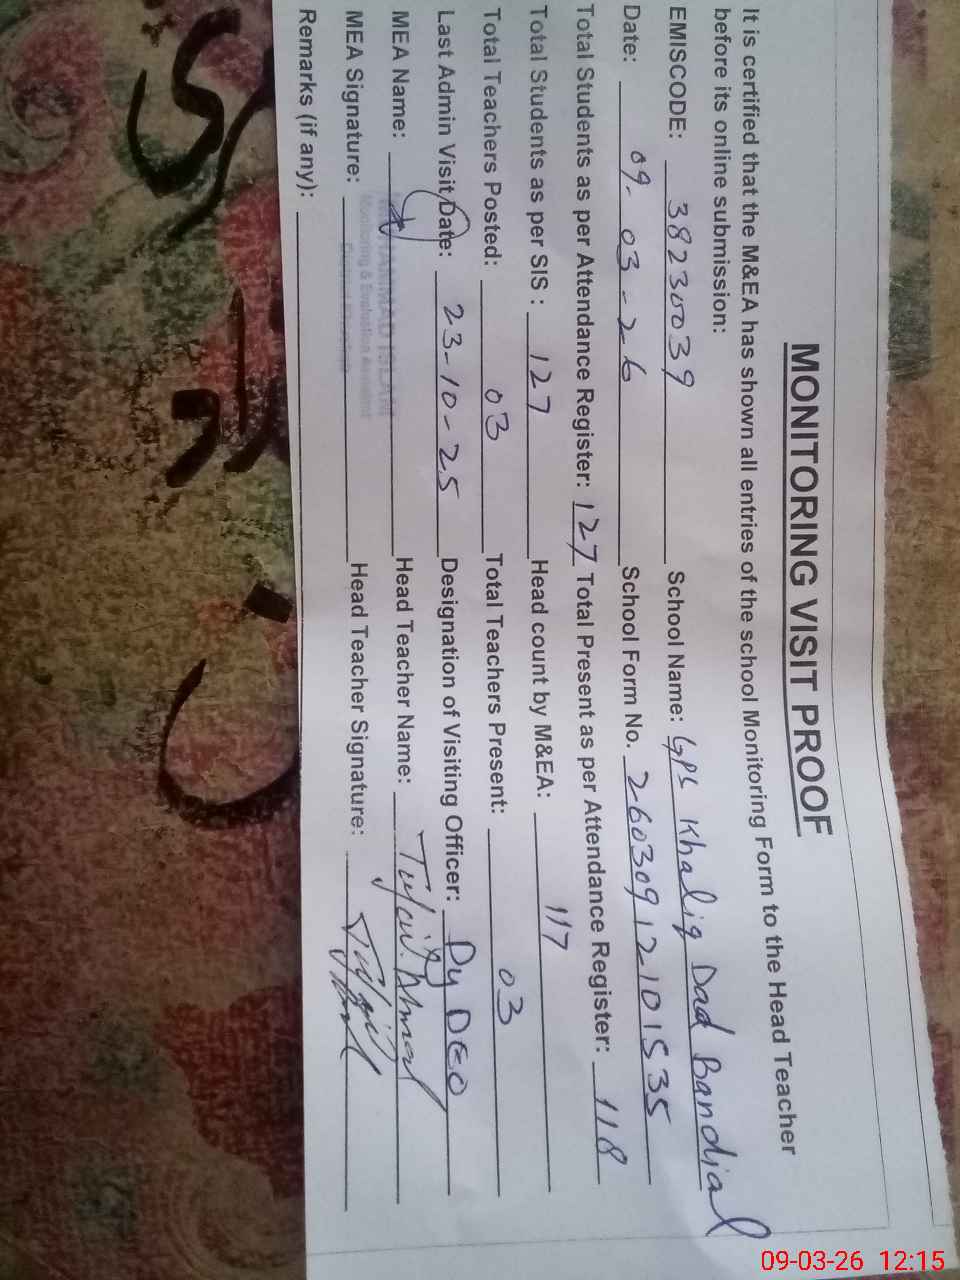 MONITORING VISIT PROOF
It is certified that the M&EA has shown all entries of the school Monitoring Form to the Head Teacher
before its online submission:
EMISCODE: 38230039 School Name: GPS Khaliq Dad Bandial
Date: 09-03-26 School Form No. 26030912101535
Total Students as per Attendance Register: 127 Total Present as per Attendance Register: 118
Total Students as per SIS : 127 Head count by M&EA: 117
Total Teachers Posted: 03 Total Teachers Present: 03
Last Admin Visit Date: 23-10-25 Designation of Visiting Officer: Dy DEO
MEA Name: Head Teacher Name: Ahmad
MEA Signature: Head Teacher Signature:
Remarks (if any):
Monitoring & Evaluation Assistant
09-03-26 12:15